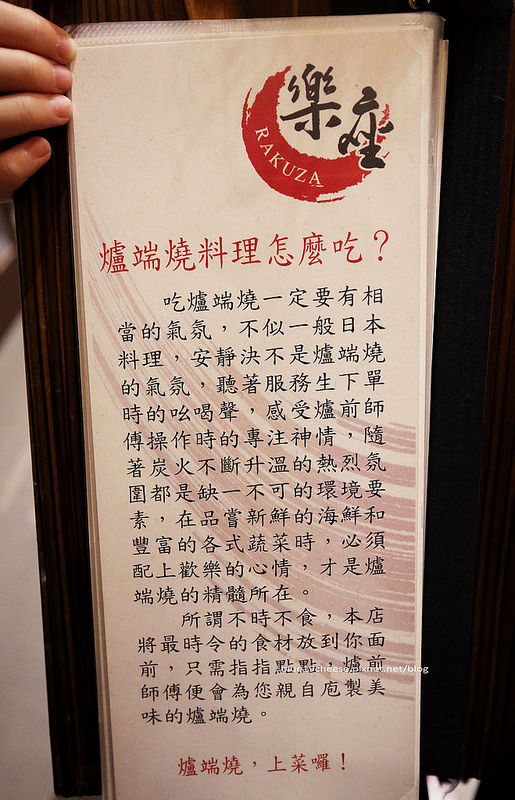 樂座
RAKUZA
爐端燒料理怎麼吃？
吃爐端燒一定要有相
當的氣氛，不似一般日本
料理，安靜決不是爐端燒
的氣氛，聽著服務生下單
時的吆喝聲，感受爐前師
傅操作時的專注神情，隨
著炭火不斷升溫的熱烈氛
圍都是缺一不可的環境要
素，在品嘗新鮮的海鮮和
豐富的各式蔬菜時，必須
配上歡樂的心情，才是爐
端燒的精髓所在。
所謂不時不食，本店
將最時令的食材放到你面
前，只需指指點點，爐前
師傅便會為您親自庖製美
味的爐端燒。
爐端燒，上菜囉！